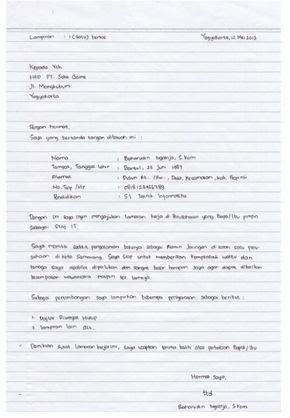 Lampiran : 1 (satu) berkas Yogyakarta, 12 Mei 2013
Kepada Yth
HRD PT. Suka Game
Jl. Mangkubumi
Yogyakarta
Dengan hormat,
Saya yang bertanda tangan dibawah ini :
Nama : Baharudin S.Kom
Tempat, Tanggal lahir : Bantul, 25 Juni 1987
Alamat : Dusun Rt. /Rw. , Desa, Kecamatan, Kab, Provinsi
No. Telp /Hp : 08
Pendidikan : S1 Teknik Informatika
Dengan ini saya ingin mengajukan lamaran kerja di Perusahaan yang Bapak/Ibu pimpin
sebagai Staf IT.
Saya memiliki sedikit pengalaman bekerja sebagai Admin Jaringan di salah satu peru-
sahaan di kota Semarang. Saya siap untuk memberikan kompetensi waktu dan
tenaga saya apabila diperlukan dan sangat besar harapan saya agar dapat diberikan
kesempatan wawancara maupun tes lainnya.
Sebagai pertimbangan saya lampirkan beberapa persyaratan sebagai berikut :
1. Daftar Riwayat Hidup
2. Lampiran lain dll.
Demikian surat lamaran kerja ini, saya ucapkan terima kasih atas perhatian Bapak/Ibu
Hormat Saya,
ttd
Baharudin S.Kom